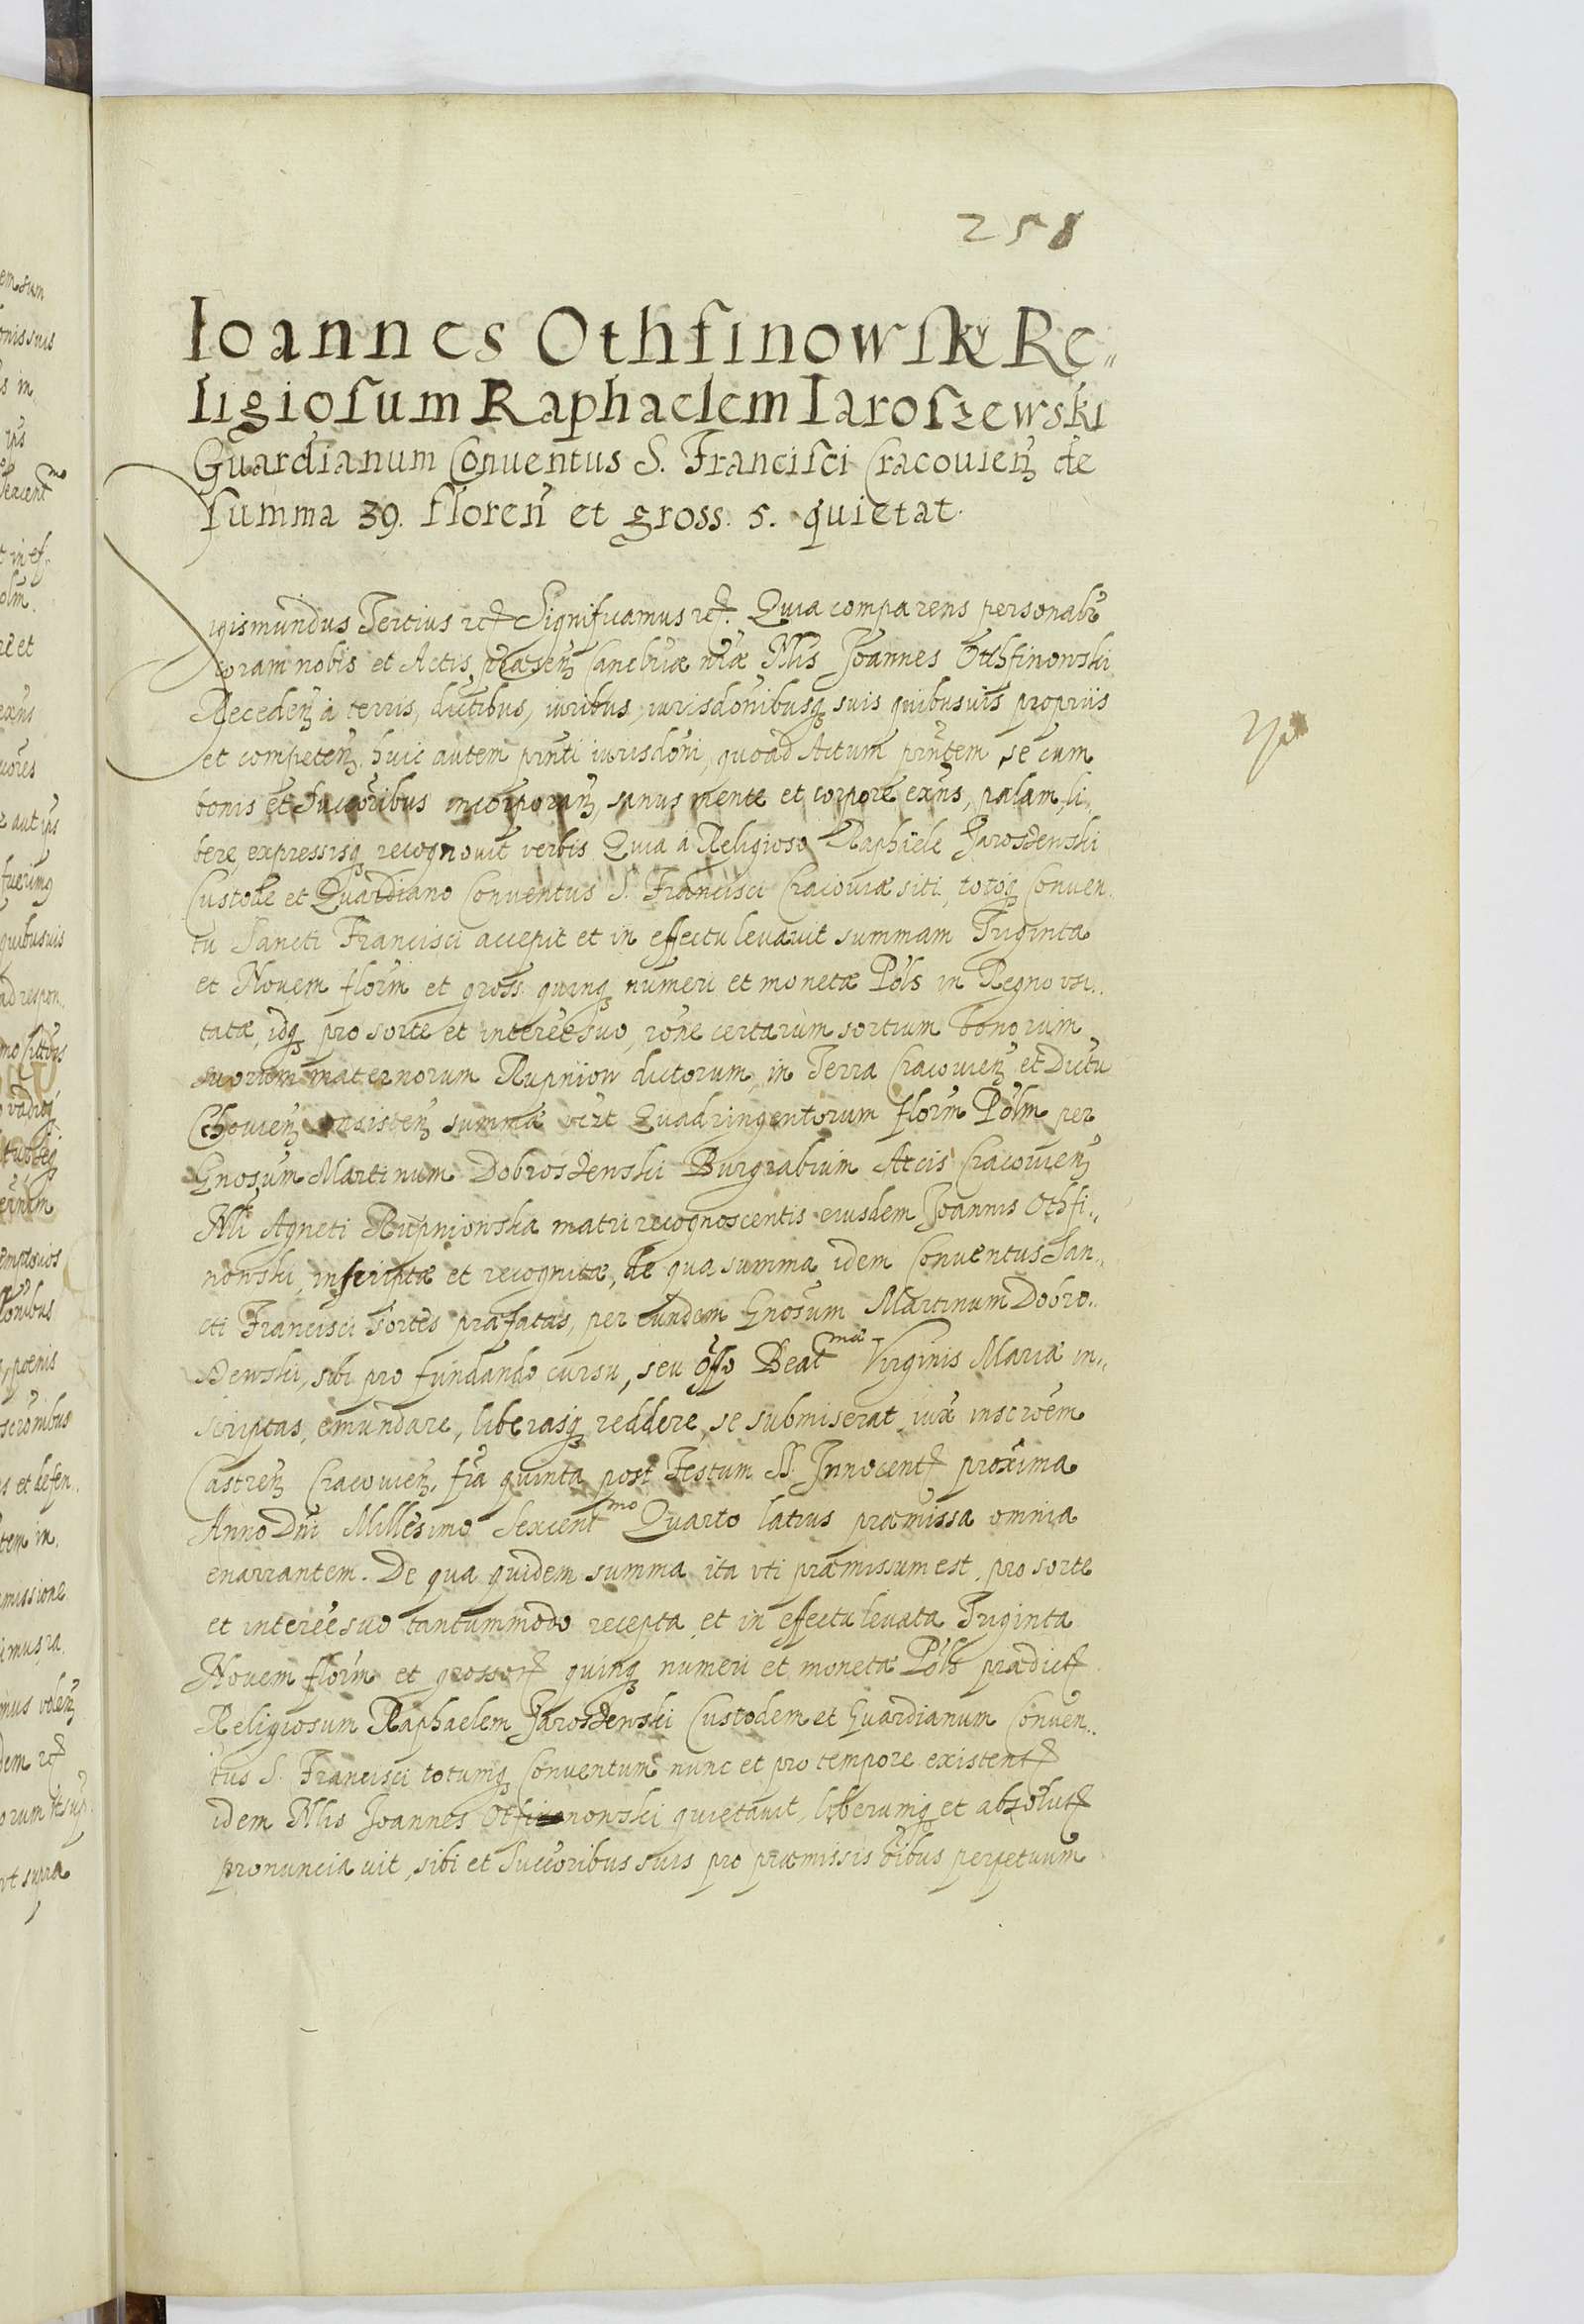 258
Ioannes Othfinowski Re„
ligiosum Raphaelem Iaroszewski
Guardianum Conuentus S. Francisci Cracouien̄ de
summa 39. floren̄ et gross. 5. quietat.
Sigismundus Tertius etc. Significamus etc. Quia comparens personalr̄
coram nobis et Actis praesen̄ Cancellr̄iae nr̄ae Nlis Joannes Othfinowski
Receden̄ à terris, dictibus, iuribus, iurisdōnibusq3 suis quibusuis propriis
et competen̄. huic autem pn̄ti iurisdōni, quoad Actum pn̄tem, se cum
bonis et succōribus incorporan̄, sanus mente et corpore exn̄s, palam, li„
bere, expressisq3 recognouit verbis. Quia à Religioso Raphäele Jaroszewski
Custode et Quardiano Conuentus S. Francisci Cracouiae siti, totoq3 Conuen„
tu Sancti Francisci accepit et in effectu leuauit summam Triginta
et Nouem flor̄m et gross. quinq3 numeri et monetae Pol̄s in Regno vsi„
tatae, idq3 pro sorte et interēē suo, rōne certarum sortium bonorum
suorum maternorum Rupniow dictorum, in Terra Cracouien̄ et Dictu
Cchouien̄ consisten̄ summae vcz̄t Quadringentorum flor̄m Pol̄m per
Gnosum Martinum Dobroszewski Burgrabium Arcis Cracouien̄
Nli Agneti Rupniowska matri recognoscentis eiusdem Joannis Othfi„
nowski, inscriptae et recognitae, de qua summa idem Conuentus San„
cti Francisci sortes praefatas, per eundem Gnosum Martinum Dobro„
szewski, sibi pro fundando cursu, seu offō Beatmae Virginis Mariae in„
scriptas, emundare, liberasq3 reddere, se submiserat, iux̄ inscrōēm
Castren̄ Cracouien̄, fr̄ia quinta post Festum SS. Innocent. proxima
Anno Dn̄i Millesimo Sexcentmo Quarto latius praemissa omnia
enarrantem. De qua quidem summa ita vti praemissum est, pro sorte
et interēē suo tantummodo recepta et in effectu leuata Triginta
Nouem flor̄m et grossor. quinq3 numeri et monetae Pol̄s praedict.
Religiosum Raphaelem Jaroszewski Custodem et Guardianum Conuen„
tus S. Francisci totumq3 Conuentum nunc et pro tempore existent.
idem Nlis Joannes Otfinowski quietauit, liberumq3 et absolut.
pronunciauit, sibi et succōribus suis pro praemissis ōībus perpetuum